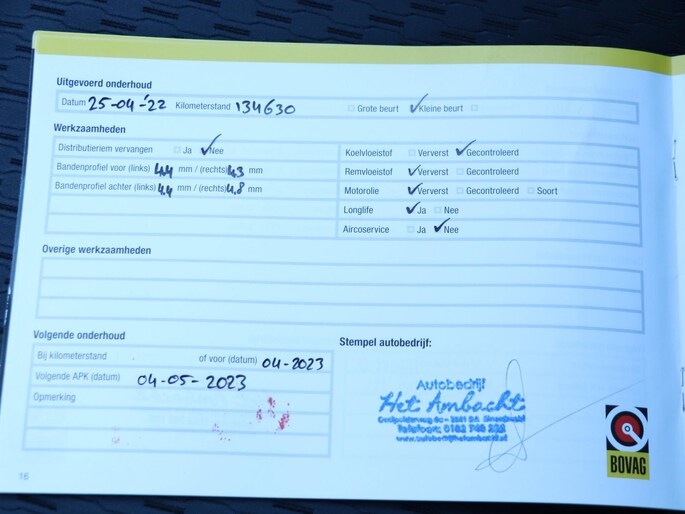 Uitgevoerd onderhoud
Datum 25-04-'22 Kilometerstand 134630 Grote beurt Kleine beurt
Werkzaamheden
Distributieriem vervangen Ja Nee Koelvloeistof Ververst Gecontroleerd
Bandenprofiel voor (links) 4.4 mm / (rechts) 4.3 mm Remvloeistof Ververst Gecontroleerd
Bandenprofiel achter (links) 4.4 mm / (rechts) 4.8 mm Motorolie Ververst Gecontroleerd Soort
Longlife Ja Nee
Aircoservice Ja Nee
Overige werkzaamheden
Volgende onderhoud
Bij kilometerstand of voor (datum) 04-2023
Volgende APK (datum) 04-05-2023
Opmerking
Stempel autobedrijf:
Autobedrijf
Het Ambacht
www.autobedrijfhetambacht.nl
BOVAG
16